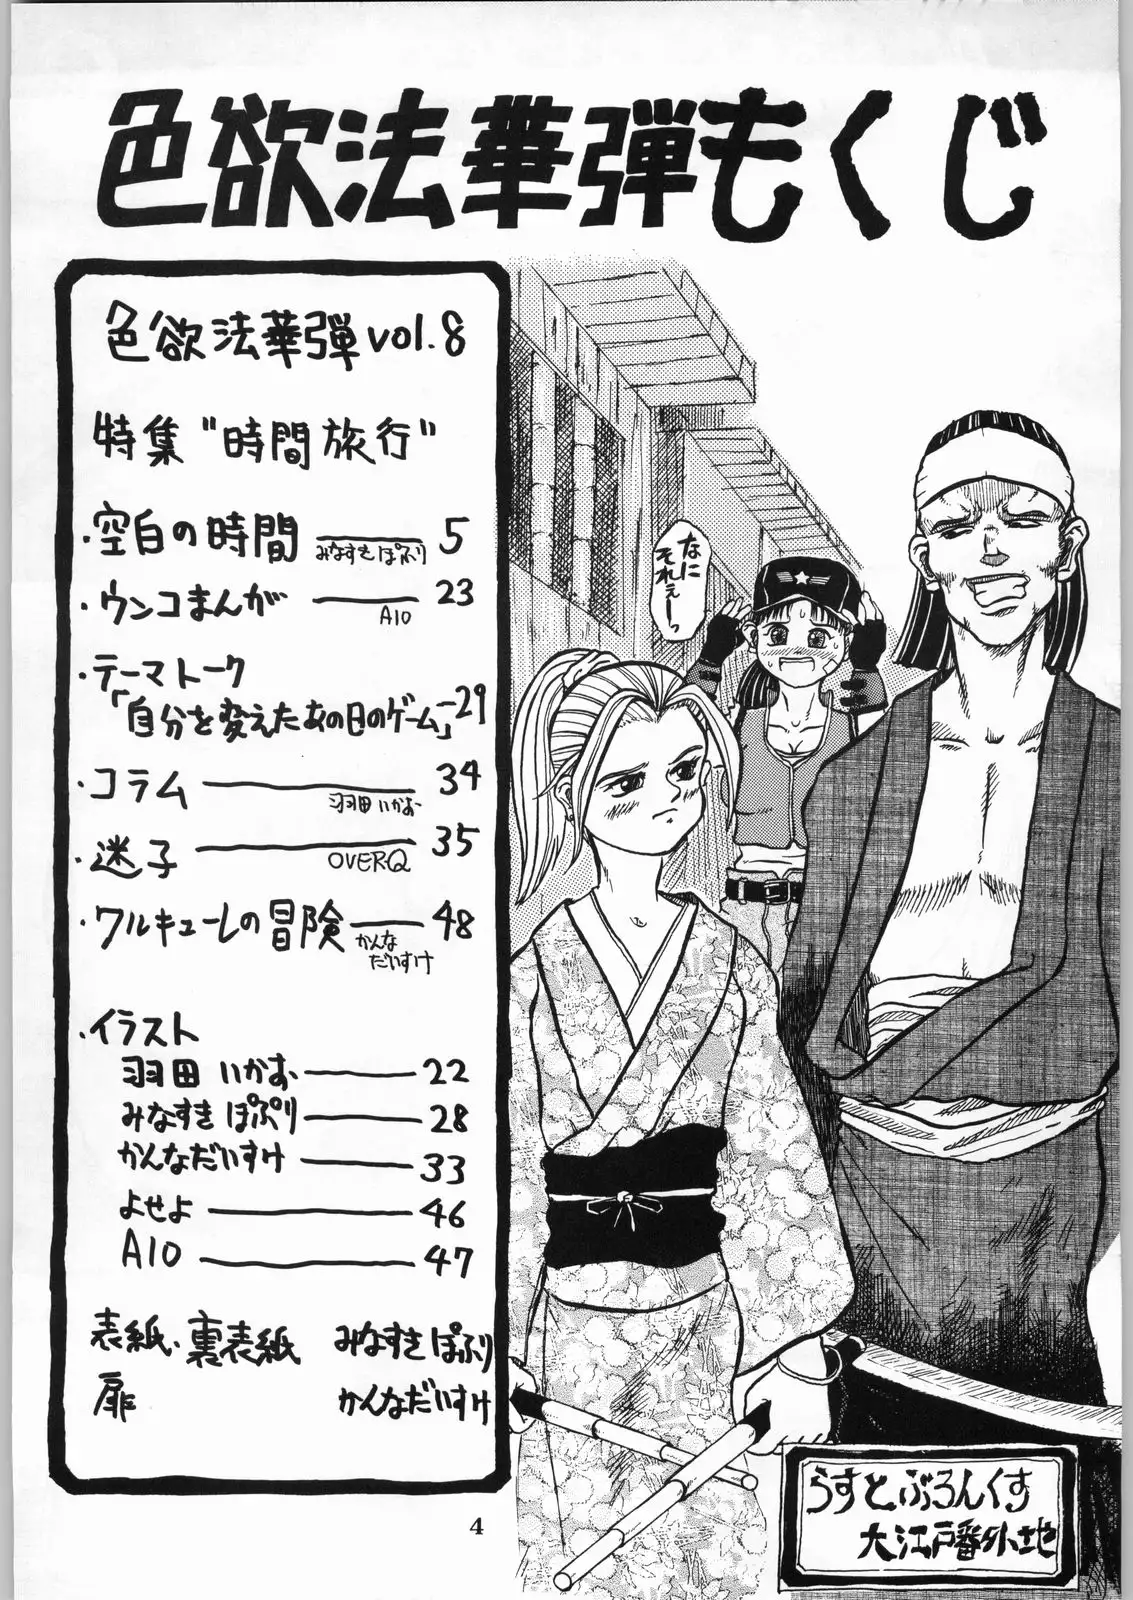 色欲法華弾もくじ
色欲法華弾vol.8
特集"時間旅行"
・空白の時間 5
みなすきぽぷり
・ウンコまんが 23
A10
・テーマトーク
「自分を変えたあの日のゲーム」 29
・コラム 34
羽田いかお
・迷子 35
OVERQ
・ワルキューレの冒険 48
かんな
だいすけ
・イラスト
羽田いかお 22
みなすきぽぷり 28
かんなだいすけ 33
よせよ 46
A10 47
表紙・裏表紙 みなすきぽぷり
扉 かんなだいすけ
なに
それぇーっ
らすとぶろんくす
大江戸番外地
4